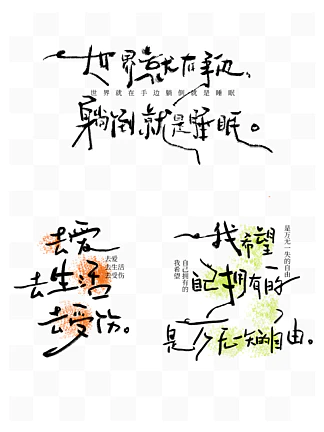 世界就在手边，
世界就在手边躺倒就是睡眠
躺倒就是睡眠。
去爱
去生活
去受伤。
去爱
去生活
去受伤
我希望
自己拥有的
是万无一失的自由。
是万无一失的自由
自己拥有的
我希望